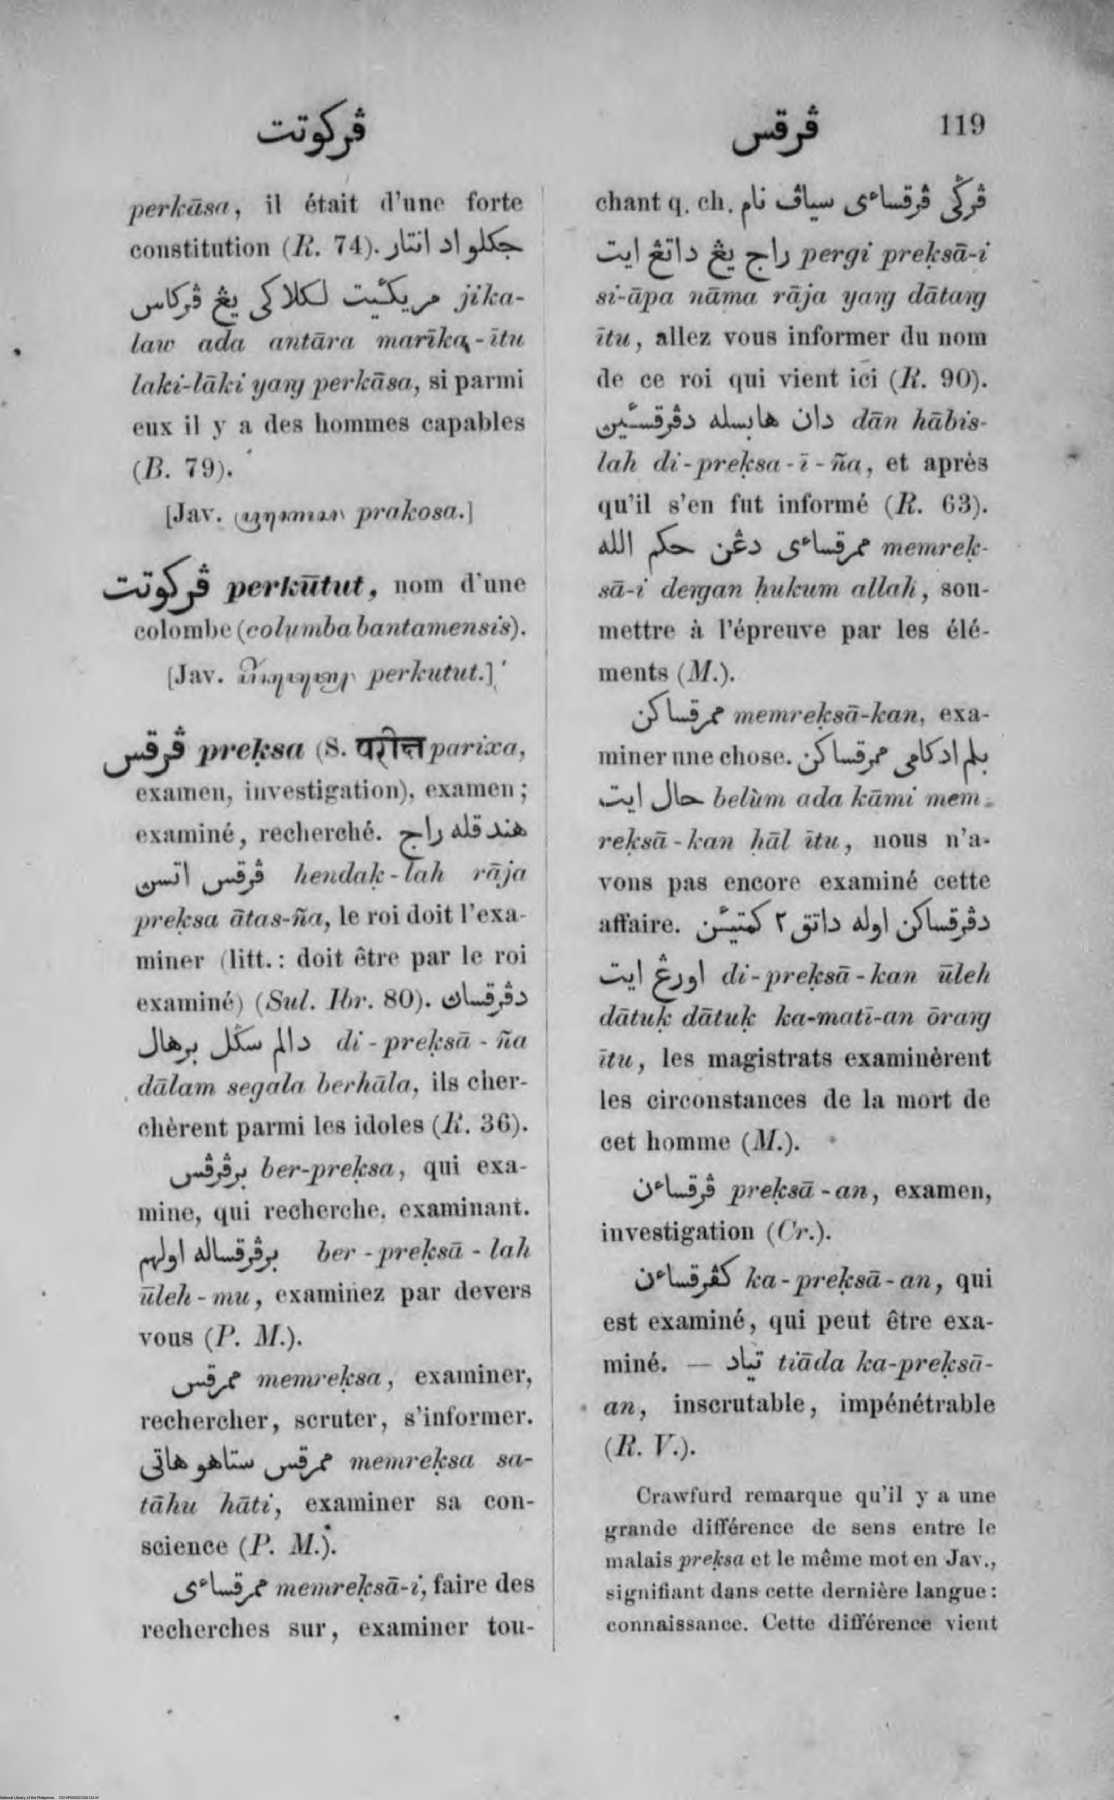 ڤركوتت
ڤرقس 119
perkāsa, il était d'une forte
constitution (R. 74). جكلو اد انتار
مريكئيت لكلاكي يڠ ڤركاس jika-
law ada antāra marīka-ītu
laki-lāki yaŋ perkāsa, si parmi
eux il y a des hommes capables
(B. 79).
[Jav. prakosa.]
ڤركوتت perkūtut, nom d'une
colombe (columba bantamensis).
[Jav. perkutut.]
ڤرقس preḳsa (S. परीक्ष parixa,
examen, investigation), examen;
examiné, recherché. هندقله راج
ڤرقس اتسن hendaḳ-lah rāja
preḳsa ātas-ña, le roi doit l'exa-
miner (litt.: doit être par le roi
examiné) (Sul. Ibr. 80). دڤرقسان
دالم سڬل برهال di-preḳsā-ña
dālam segala berhāla, ils cher-
chèrent parmi les idoles (R. 36).
برڤرڤس ber-preḳsa, qui exa-
mine, qui recherche, examinant.
برڤرقساله اولهم ber-preḳsā-lah
ūleh-mu, examinez par devers
vous (P. M.).
ممرقس memreḳsa, examiner,
rechercher, scruter, s'informer.
ممرقس ستاهو هاتي memreḳsa sa-
tāhu hāti, examiner sa con-
science (P. M.).
ممرقساءي memreḳsā-i, faire des
recherches sur, examiner tou-
chant q. ch. ڤرڬي ڤرقساءي سياڤ نام
راج يڠ داتڠ ايت pergi preḳsā-i
si-āpa nāma rāja yaŋ dātaŋ
ītu, allez vous informer du nom
de ce roi qui vient ici (R. 90).
دان هابسله دڤرقسئين dān hābis-
lah di-preḳsa-ī-ña, et après
qu'il s'en fut informé (R. 63).
ممرقساءي دڠن حكم الله memreḳ-
sā-i deŋan ḥukum allah, sou-
mettre à l'épreuve par les élé-
ments (M.).
ممرقساكن memreḳsā-kan, exa-
miner une chose. بلم اد كامي ممرقساكن
حال ايت belùm ada kāmi mem-
reḳsā-kan ḥāl ītu, nous n'a-
vons pas encore examiné cette
affaire. دڤرقساكن اوله داتق ٢ كمتيئن
اورڠ ايت di-preḳsā-kan ūleh
dātuḳ dātuḳ ka-matī-an ōraŋ
ītu, les magistrats examinèrent
les circonstances de la mort de
cet homme (M.).
ڤرقساءن preḳsā-an, examen,
investigation (Cr.).
كڤرقساءن ka-preḳsā-an, qui
est examiné, qui peut être exa-
miné. — تياد tiāda ka-preḳsā-
an, inscrutable, impénétrable
(R. V.).
Crawfurd remarque qu'il y a une
grande différence de sens entre le
malais preḳsa et le même mot en Jav.,
signifiant dans cette dernière langue:
connaissance. Cette différence vient